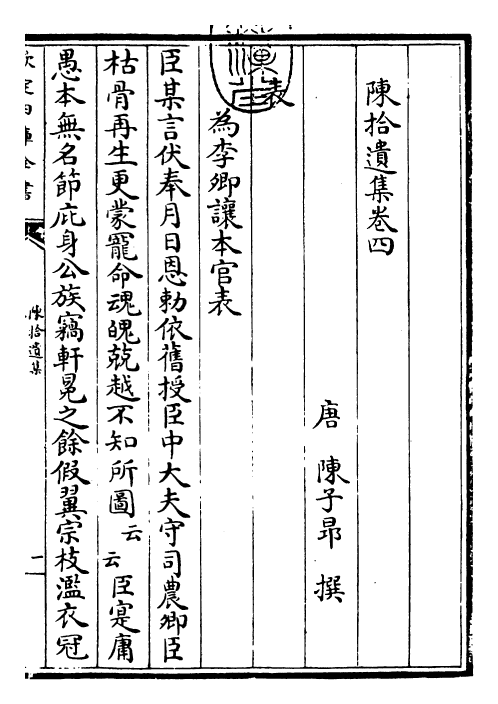 陳拾遺集卷四
唐 陳子昂 撰
表
為李卿讓本官表
臣某言伏奉月日恩勅依舊授臣中大夫守司農卿臣
枯骨再生更蒙寵命魂魄兢越不知所圖云云臣寔庸
愚本無名節庇身公族竊軒冕之餘假翼宗枝濫衣冠
欽定四庫全書
陳拾遺集
一